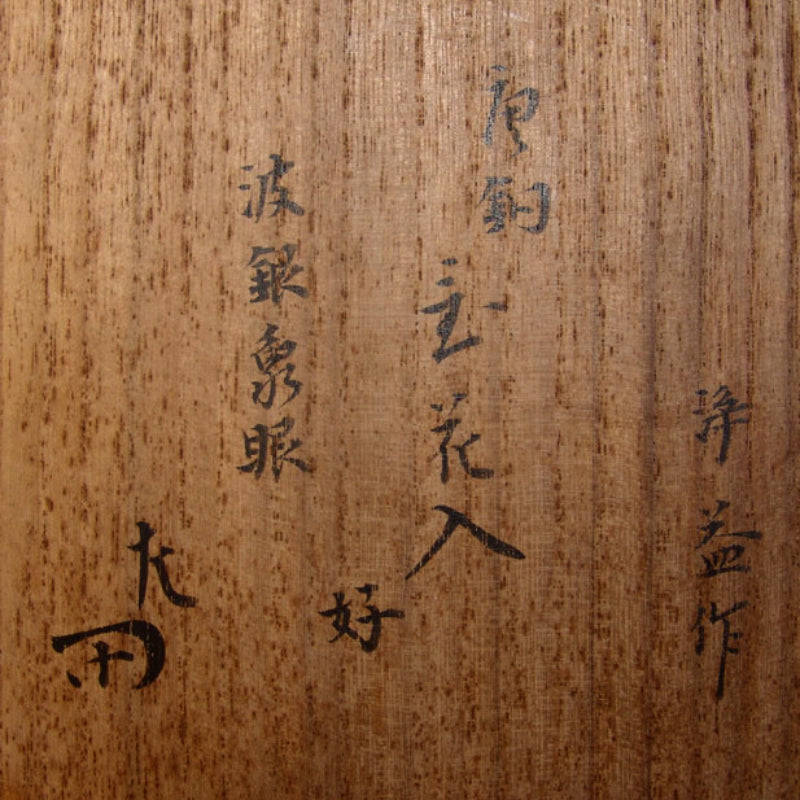 浄益作
唐銅
花入
好
波銀象眼